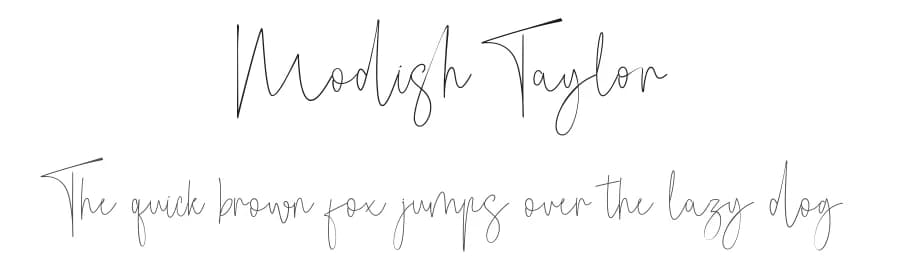 Modish Taylor
The quick brown fox jumps over the lazy dog